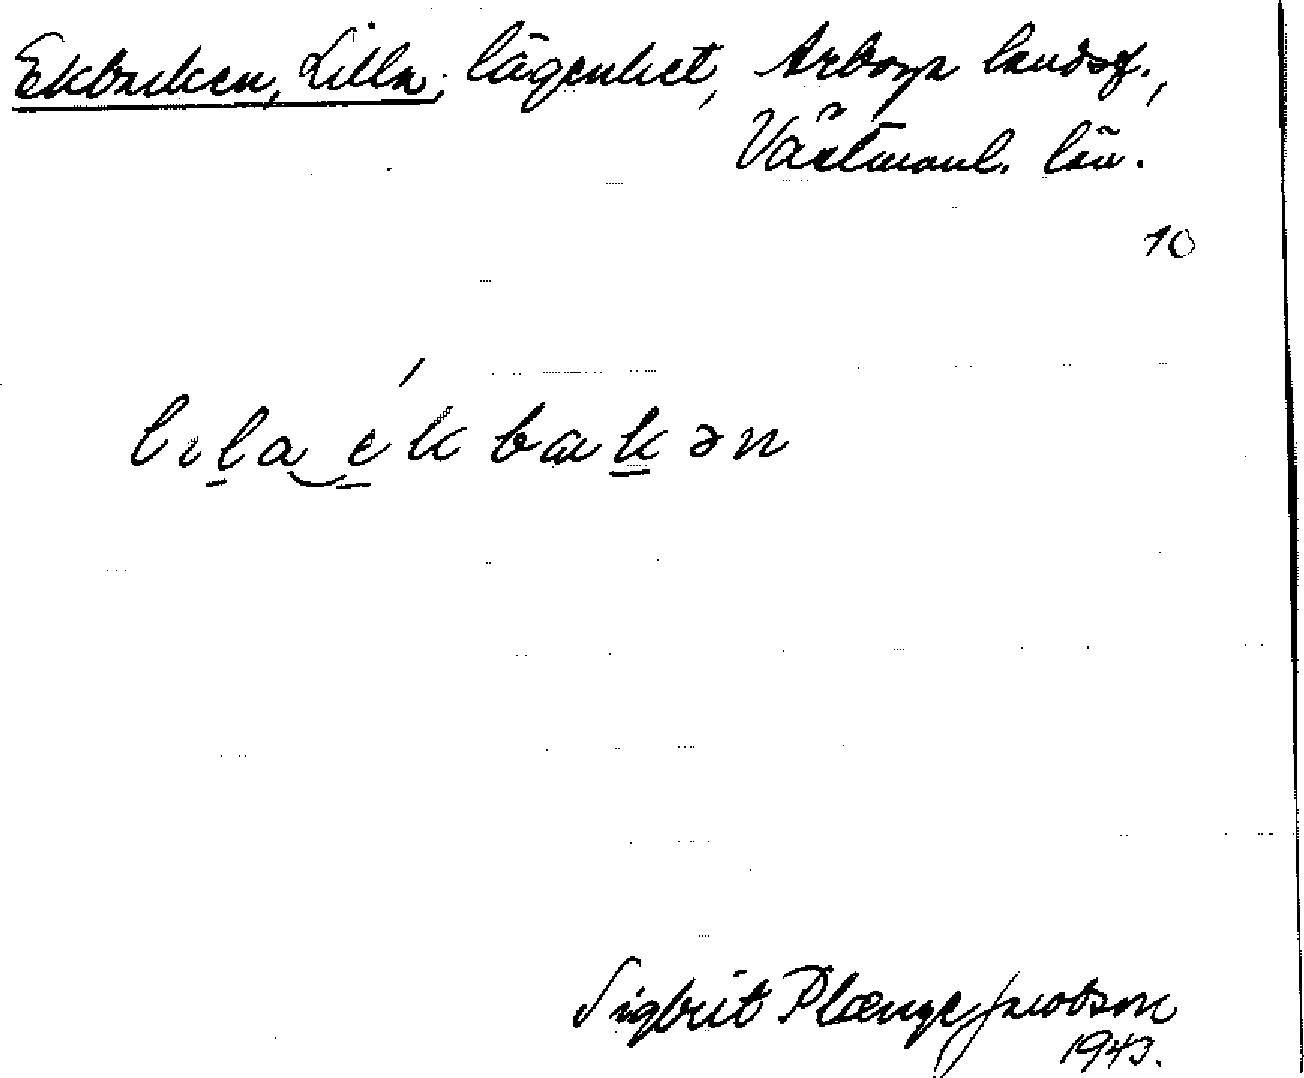 Ekbacken, Lilla, lägenhet, Arboga landsf.,
Västmanl. län.
10
lıla ék bakən
Sigbrit Plænge Jacobson
1943.